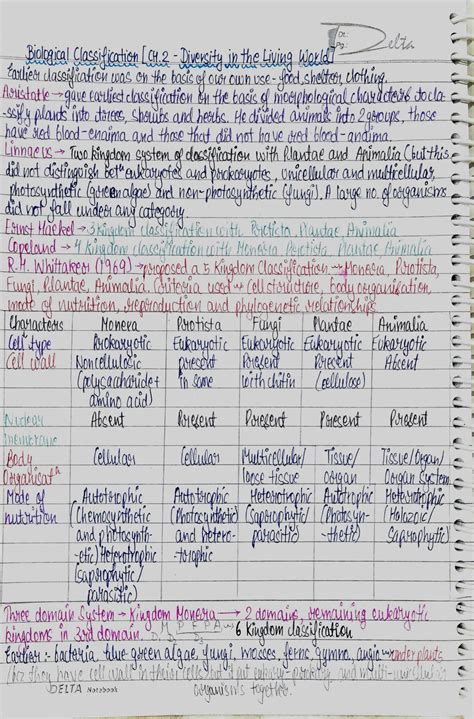 Dt.:
Pg.:
Delta
Biological Classification [Ch.2 - Diversity in the Living World]
Earlier classification was on the basis of our own use - food, shelter, clothing.
Aristotle → gave earliest classification on the basis of morphological characters to cla-
ssify plants into trees, shrubs and herbs. He divided animals into 2 groups, those
have red blood - enaima and those that did not have red blood - anaima.
Linnaeus → Two kingdom system of classification with Plantae and Animalia (but this
did not distinguish betn eukaryotes and prokaryotes, unicellular and multicellular,
photosynthetic (green algae) and non-photosynthetic (fungi). A large no. of organisms
did not fall under any category.
Ernst Haekel → 3 kingdom classification with Protista, Plantae, Animalia
Copeland → 4 kingdom classification with Monera, Protista, Plantae, Animalia
R.H. Whittaker (1969) → proposed a 5 kingdom classification → Monera, Protista,
Fungi, Plantae, Animalia. Criteria used → Cell structure, body organisation,
mode of nutrition, reproduction and phylogenetic relationships
Characters Monera Protista Fungi Plantae Animalia
Cell type Prokaryotic Eukaryotic Eukaryotic Eukaryotic Eukaryotic
Cell wall Noncellulosic present Present Present Absent
(polysaccharide + in some with chitin (cellulose)
amino acid)
Nuclear Absent Present Present Present Present
membrane
Body Cellular Cellular Multicellular/ Tissue/ Tissue/Organ/
Organisatn loose tissue organ Organ system
Mode of Autotrophic Autotrophic Heterotrophic Autotrophic Heterotrophic
nutrition (Chemosynthetic (Photosynthetic) (Saprophytic/ (Photosyn- (Holozoic/
and photosynth- and hetero- parasitic) -thetic) Saprophytic)
-etic) Heterotrophic -trophic
(saprophytic/
parasitic)
Three domain System → Kingdom Monera → 2 domains, remaining eukaryotic
kingdoms in 3rd domain. 6 kingdom classification
Earlier :- bacteria, blue green algae, fungi, mosses, ferns, gymno, angio → under plants
they have cell wall in their cells but it put
DELTA Notebook organisms together.